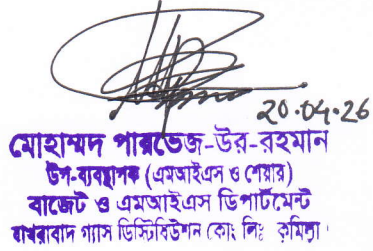 20.04.26
মোহাম্মদ পারভেজ-উর-রহমান
উপ-ব্যবস্থাপক (এমআইএস ও শেয়ার)
বাজেট ও এমআইএস ডিপার্টমেন্ট
বাখরাবাদ গ্যাস ডিস্ট্রিবিউশন কোং লিঃ কুমিল্লা।